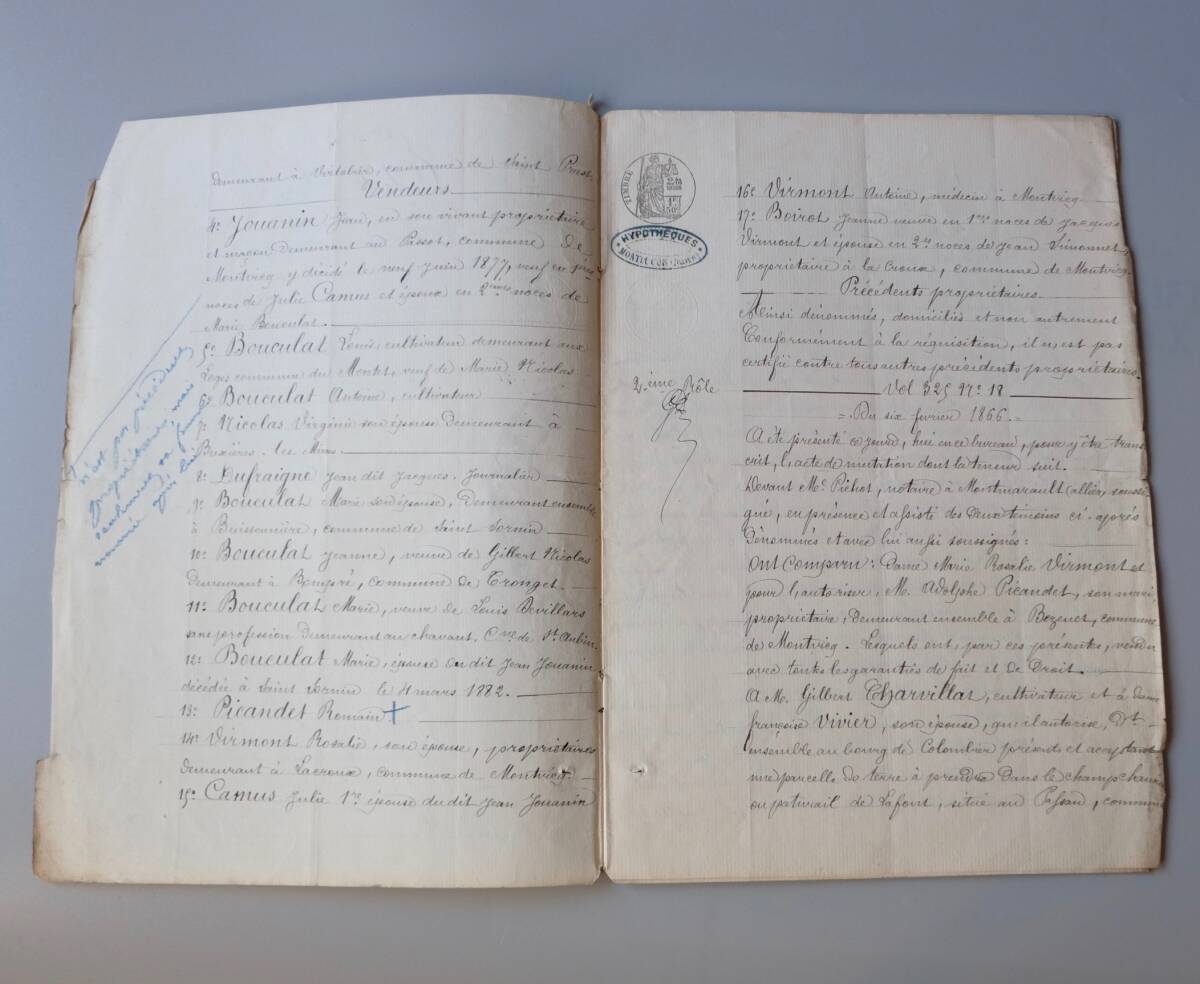 demeurant à commune de Saint Priest
Vendeurs
4e Jouanin Jean, en son vivant propriétaire
et maçon demeurant au Passot, commune de
Montvicq y décédé le neuf juin 1877, veuf en 1res
noces de Julie Camus et époux en 2mes noces de
Marie Bouculat.
5e Bouculat Louis, cultivateur demeurant aux
Loges commune du Montet, veuf de Marie Nicolas
6e Bouculat Antoine, cultivateur
7e Nicolas Virginie son épouse demeurant à
Buxières-les-Mines
8e Dufraigne Jean dit Jacques, Journalier
9e Bouculat Marie son épouse, Demeurant ensemble
à Buissonnière, commune de Saint Sornin
10e Bouculat Jeanne, veuve de Gilbert Nicolas
Demeurant à commune de Tronget
11e Bouculat Marie, veuve de Louis Devillars
sans profession demeurant au chavant, Cne de St Aubin
12e Bouculat Marie, épouse du dit Jean Jouanin
décédée à Saint Sornin le 4 mars 1882.
13e Picandet Romain +
14e Virmont Rosalie, son épouse, propriétaires
demeurant à Lacroux, commune de Montvicq
15e Camus Julie 1re épouse du dit Jean Jouanin
n'est pas précédent
propriétaire mais
sa femme
qui lui
TIMBRE
HYPOTHÈQUES
MONTLUÇON (Allier)
2ième Rôle
16e Virmont Antoine, médecin à Montvicq
17e Boirot Jeanne veuve en 1res noces de Jacques
Virmont et épouse en 2es noces de Jean Vinonnet
propriétaire à la Croux, commune de Montvicq.
Précédents propriétaires.
Ainsi dénommés, domiciliés et non autrement
Conformément à la réquisition, il n'est pas
certifié contre tous autres précédents propriétaires.
Vol 325 No 18
= Du six février 1866. =
A été présenté ce jourd'hui en ce bureau, pour y être trans
crit, l'acte de mutation dont la teneur suit.
Devant Me Pichot, notaire à Montmarault (allier) soussi
gné, en présence et assisté des deux témoins ci-après
Dénommés et avec lui aussi soussignés:
Ont Comparu: Dame Marie Rosalie Virmont et
pour l'autoriser, M. Adolphe Picandet, son mari
propriétaire, demeurant ensemble à Bezenet, commune
de Montvicq. Lesquels ont, par ces présentes, vendu
avec toutes les garanties de fait et de Droit.
A M. Gilbert Charvillat, cultivateur et à dame
françoise Vivier, son épouse, qu'il autorise, Dt
ensemble au bourg de Colombier présents et acceptant
une parcelle de terre à prendre Dans le champ
ou paturail de Lafont, situé au commune